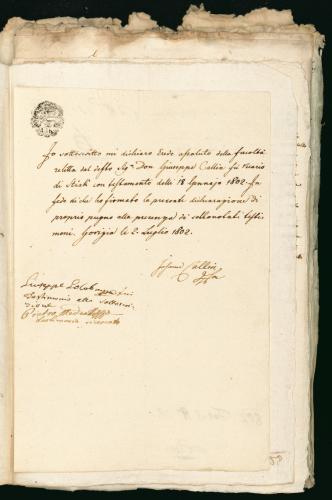 Jo sottoscritto mi dichiaro Erede assoluto della facoltà
relitta dal defto Sigr Don Giuseppe Callin fù Vicario
di Stiak con testamento delli 18 Gennajo 1802. In
fede di che ho firmato la presente dichiarazione di
proprio pugno alla presenza di sottonotati testi-
moni. Gorizia li 2. Luglio 1802.
Callin
Giuseppe
testimonio alla sottoscri-
zione
Pietro
testimonio ricercato